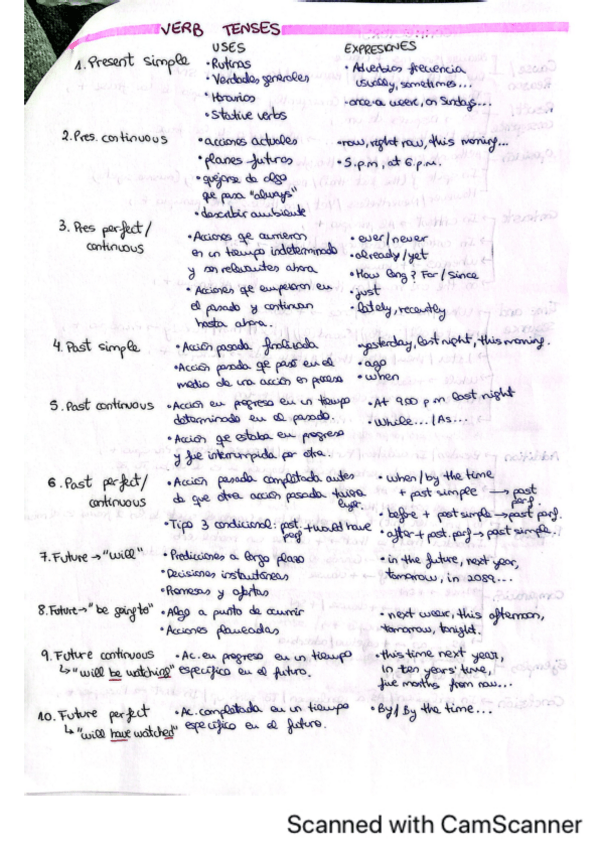 VERB TENSES
USES
EXPRESIONES
1. Present simple
• Rutinas
• Verdades generales
• Horarios
• Stative verbs
• Adverbios frecuencia
usually, sometimes...
• once a week, on Sundays...
2. Pres. continuous
• acciones actuales
• planes futuros
• quejarse de algo
qe pasa "always"
• describir ambiente
• now, right now, this morning...
• 5 p.m, at 6 p.m.
3. Pres perfect/
continuous
• Acciones qe ocurrieron
en un tiempo indeterminado
y son relevantes ahora
• Acciones qe empezaron en
el pasado y continuan
hasta ahora.
• ever/never
• already/yet
• How long? For/since
• just
• lately, recently
4. Past simple
• Acción pasada finalizada
• Acción pasada qe pasó en el
medio de una acción en proceso
• yesterday, last night, this morning.
• ago
• when
5. Past continuous
• Acción en progreso en un tiempo
determinado en el pasado.
• Acción qe estaba en progreso
y fue interrumpida por otra.
• At 9.00 p.m. last night
• While.../As...
6. Past perfect/
continuous
• Acción pasada completada antes
de que otra acción pasada tuviera
lugar.
• Tipo 3 condicional: past. + would have
perf
• when/by the time
+ past simple → past
perf
• before + past simple → past perf.
• after + past perf → past simple.
7. Future → "will"
• Predicciones a largo plazo
• Decisiones instantáneas
• Promesas y ofertas
• in the future, next year,
tomorrow, in 2089...
8. Future → "be going to"
• Algo a punto de ocurrir
• Acciones planeadas
• next week, this afternoon,
tomorrow, tonight.
9. Future continuous
↳ "will be watching"
• Ac. en progreso en un tiempo
específico en el futuro.
• this time next year,
in ten years' time,
five months from now...
10. Future perfect
↳ "will have watched"
• Ac. completada en un tiempo
específico en el futuro.
• By/By the time...
Scanned with CamScanner